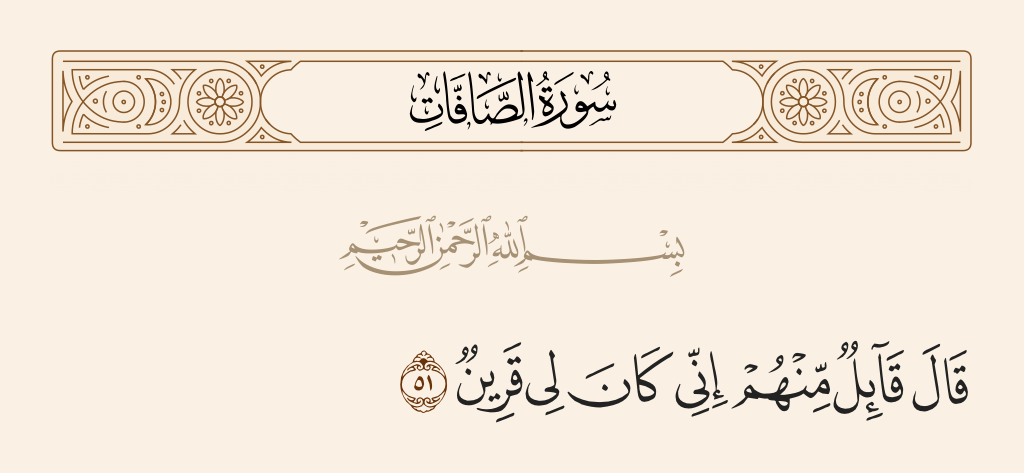 سُورَةُ الصَّافَّاتِ
بِسْمِ ٱللَّهِ ٱلرَّحْمَٰنِ ٱلرَّحِيمِ
قَالَ قَآئِلٌ مِّنْهُمْ إِنِّى كَانَ لِى قَرِينٌ ٥١